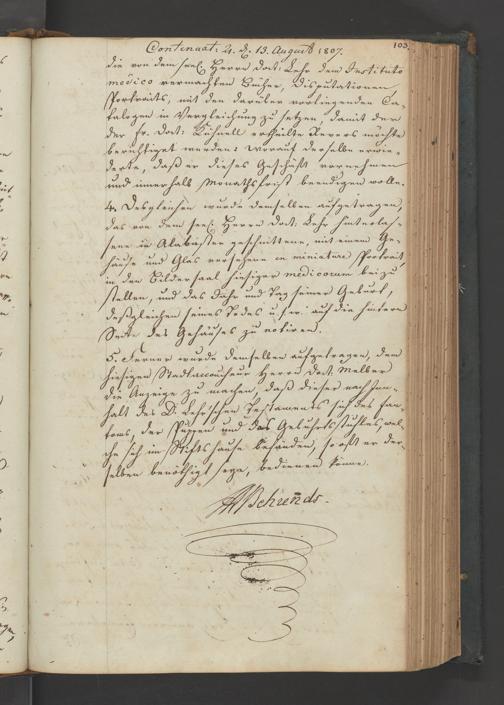 Continuat: 4. d. 13. August 1807.
103.
die von dem seel. Herrn Doct: Lehr dem Instituto
medico vermachten Bücher, Disputationen,
Portraits, mit den darüber vorliegenden Ca-
talogen in Vergleichung zu setzen, damit der
der Fr. Doct: Kühnell ertheilte Revers möchte
berichtiget werden: worauf derselbe erwie-
derte, daß er dieses Geschäft vornehmen
und innerhalb Monathsfrist beendigen wolle.
4. Desgleichen wurde demselben aufgetragen,
das von dem seel. Herrn Doct. Lehr hinterlas-
sene in Alabaster geschnittene, mit einem Ge-
häuse und Glas versehene en miniature Portrait
in den Bildersaal hiesiger medicorum bei zu
stellen, und das Jahr und Tag seiner Geburt,
desgleichen seines Todes u. s. w. auf die hintere
Seite des Gehäuses zu notiren.
5. Ferner wurde demselben aufgetragen, dem
hiesigen Stadtaccoucheur Herrn Doct. Melber
die Anzeige zu machen, daß dieser nach In-
halt des D. Lehrischen Testaments sich des Fan-
toms, der Puppen und des Geburtsstuhles, wel-
che sich im Stiftshause befänden, so oft er der-
selben benöthigt seye, bedienen könne.
Behrends.